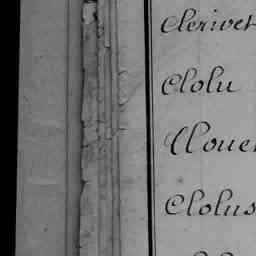 Clerivet
Clolu
Cloue
Clolus